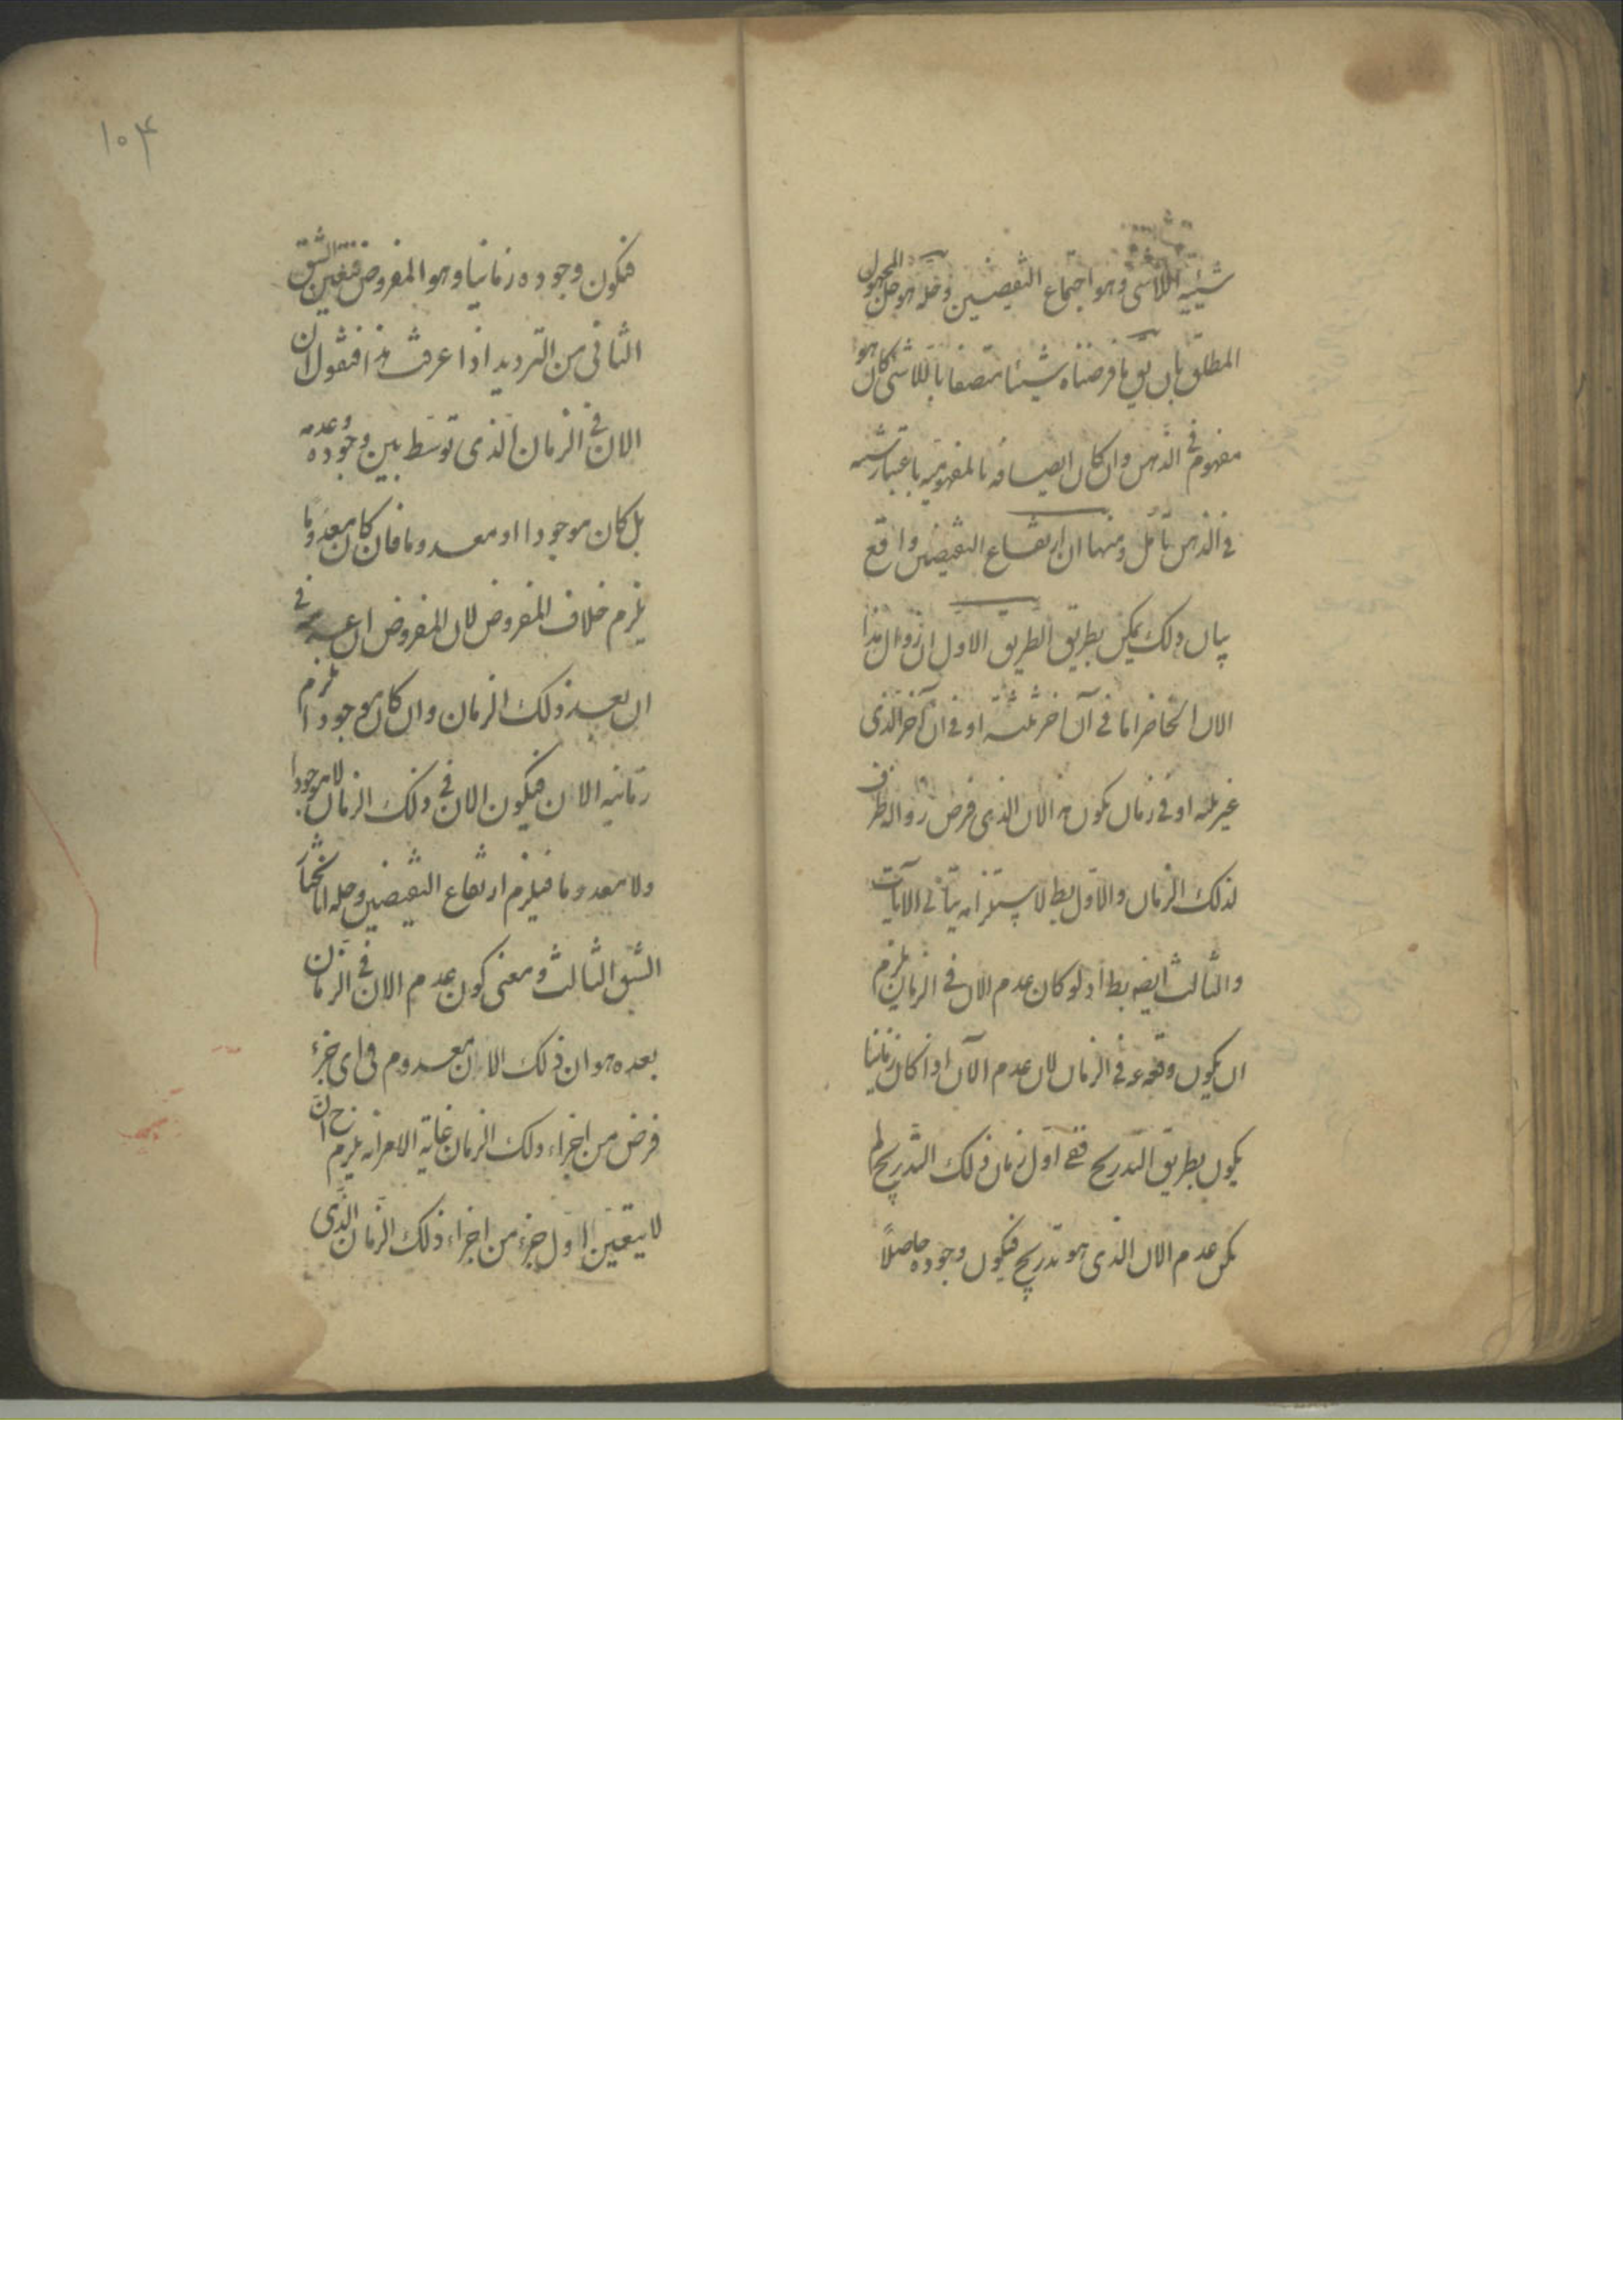 شيئية اللاشى وهو اجتماع النقيضين وحله هو حل المجهول
المطلق بان يق ما فرضناه شيئا متصفا باللاشى كان هو
مفهوم فى الذهن وان كان اتصافه بالمفهومية باعتبار
فى الذهن تأمل ومنها ان ارتفاع النقيضين واقع
بيان ذلك يمكن بطريق الطريق الاول ان زوال هذا
الان الحاضر اما فى آن اخر او فى ان آخر الذى
غير او فى زمان يكون هذا الان الذى فرض زواله ظرف
لذلك الزمان والاول بط لاستلزامه تتافى الانات
والثالث ايضه بط اذ لو كان عدم الان فى الزمان يلزم
ان يكون وقوعه فى الزمان لان عدم الآن اذا كان زمانيا
يكون بطريق التدريج ففى اول زمان ذلك التدريج لم
يكن عدم الان الذى هو تدريج فيكون وجوده حاصلاً
١٠۴
فيكون وجوده زمانيا وهو المفروض فتعين الشق
الثانى من الترديد اذا عرفت هذا فنقول ان
الان فى الزمان الذى توسط بين وجوده وعدمه
بل كان موجودا او معدوما فان كان معدوما
يلزم خلاف المفروض لان المفروض ان عدمه فى
ان بعد ذلك الزمان وان كان موجودا يلزم
زمانية الان فيكون الان فى ذلك الزمان لا موجودا
ولا معدوما فيلزم ارتفاع النقيضين وحله انا نختار
الشق الثالث ومعنى كون عدم الان فى الزمان
بعده هو ان ذلك الان معدوم فى اى جزء
فرض من اجزاء ذلك الزمان غاية الامر انه يلزم ح ان
لا يتعين اول جزء من اجزاء ذلك الزمان الذى